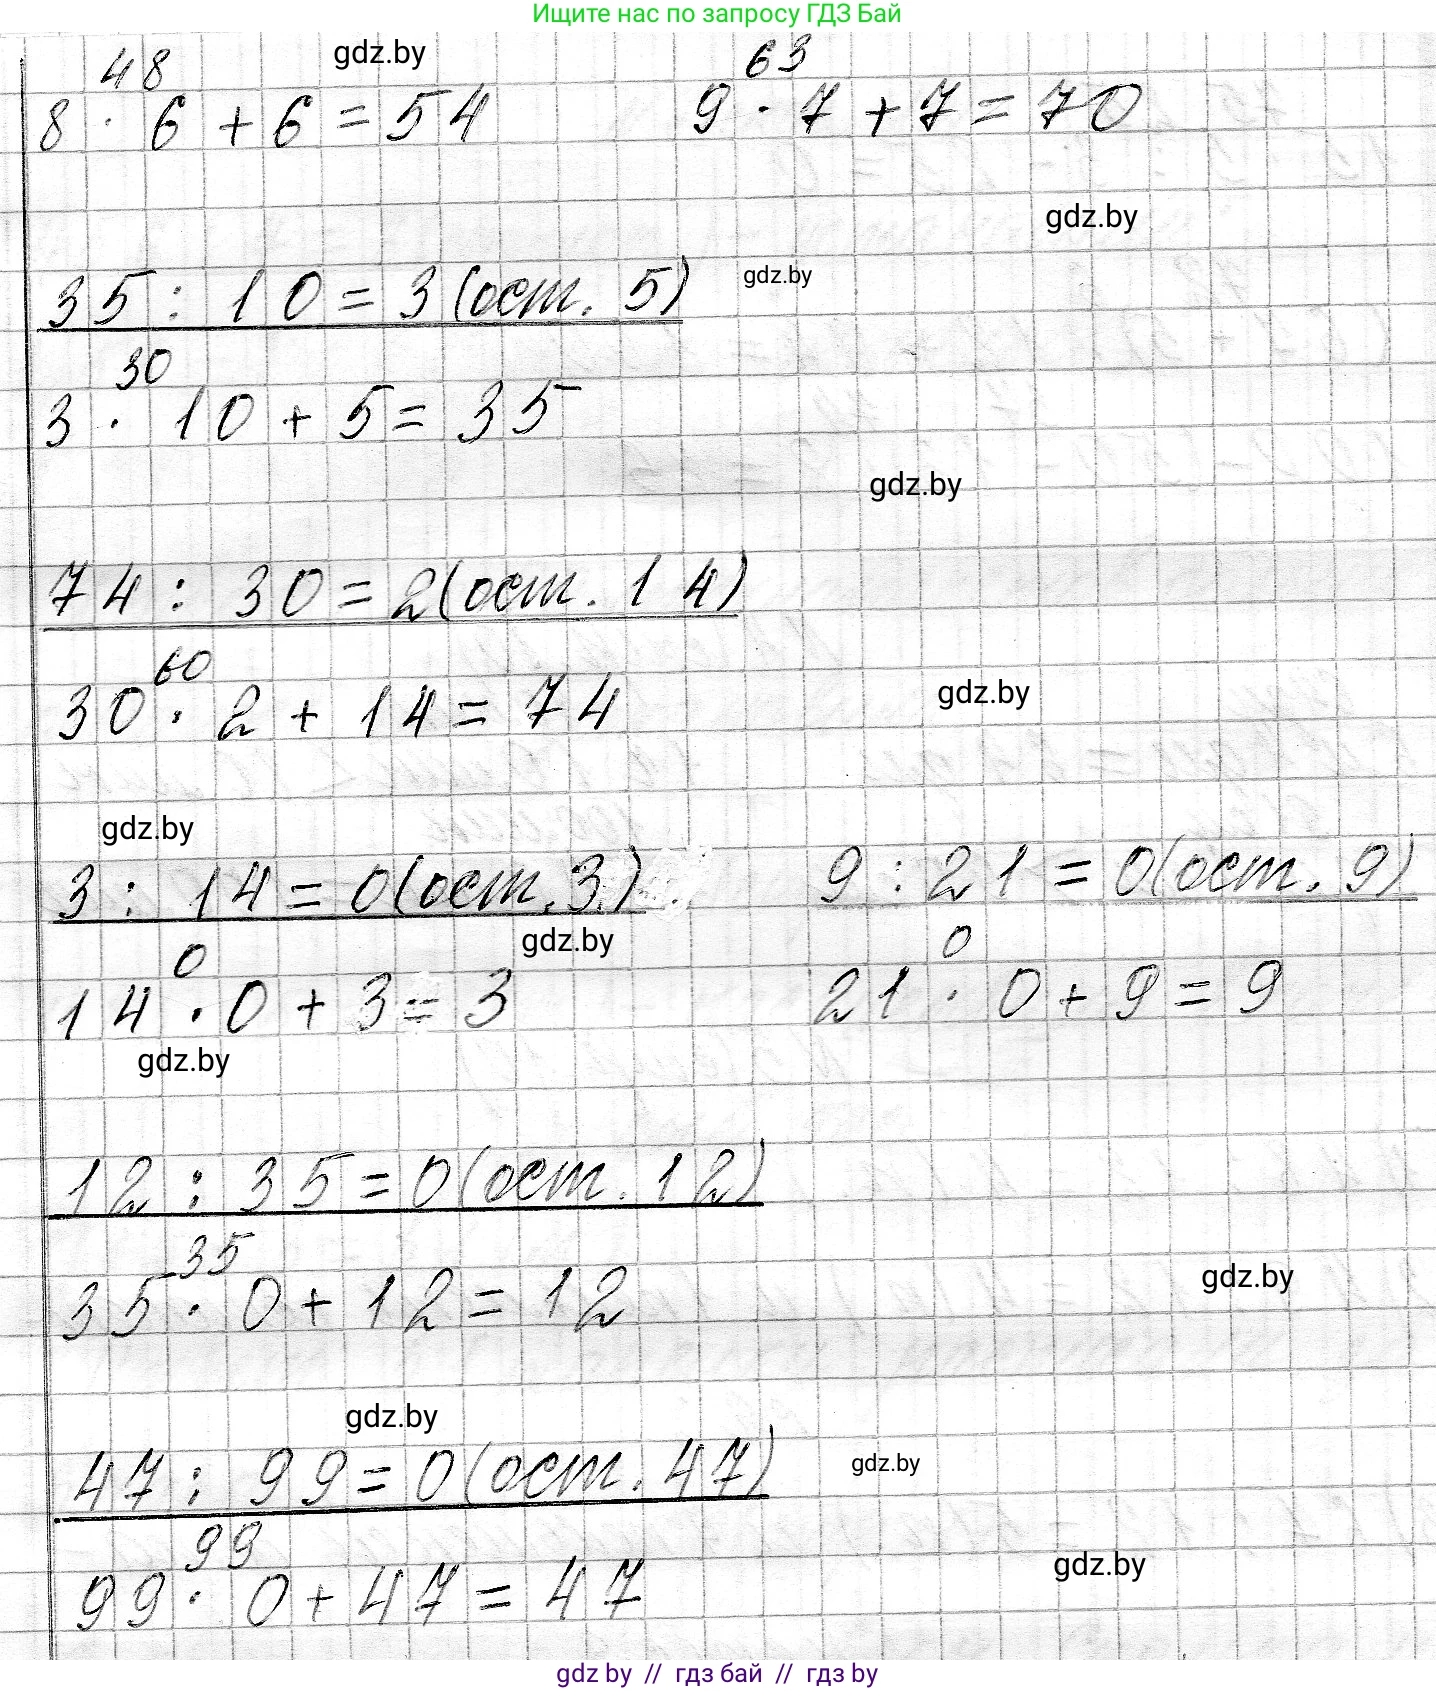 Ищите нас по запросу ГДЗ Бай
gdz.by
48 63
8 · 6 + 6 = 54 9 · 7 + 7 = 70
gdz.by
35 : 10 = 3 (ост. 5) gdz.by
30
3 · 10 + 5 = 35
gdz.by
74 : 30 = 2 (ост. 14)
60
30 · 2 + 14 = 74
gdz.by
gdz.by
3 : 14 = 0 (ост. 3) 9 : 21 = 0 (ост. 9)
gdz.by
0 0
14 · 0 + 3 = 3 21 · 0 + 9 = 9
gdz.by
12 : 35 = 0 (ост. 12)
35
35 · 0 + 12 = 12
gdz.by
gdz.by
47 : 99 = 0 (ост. 47) gdz.by
99
99 · 0 + 47 = 47
gdz.by
gdz by // гдз бай // гдз by